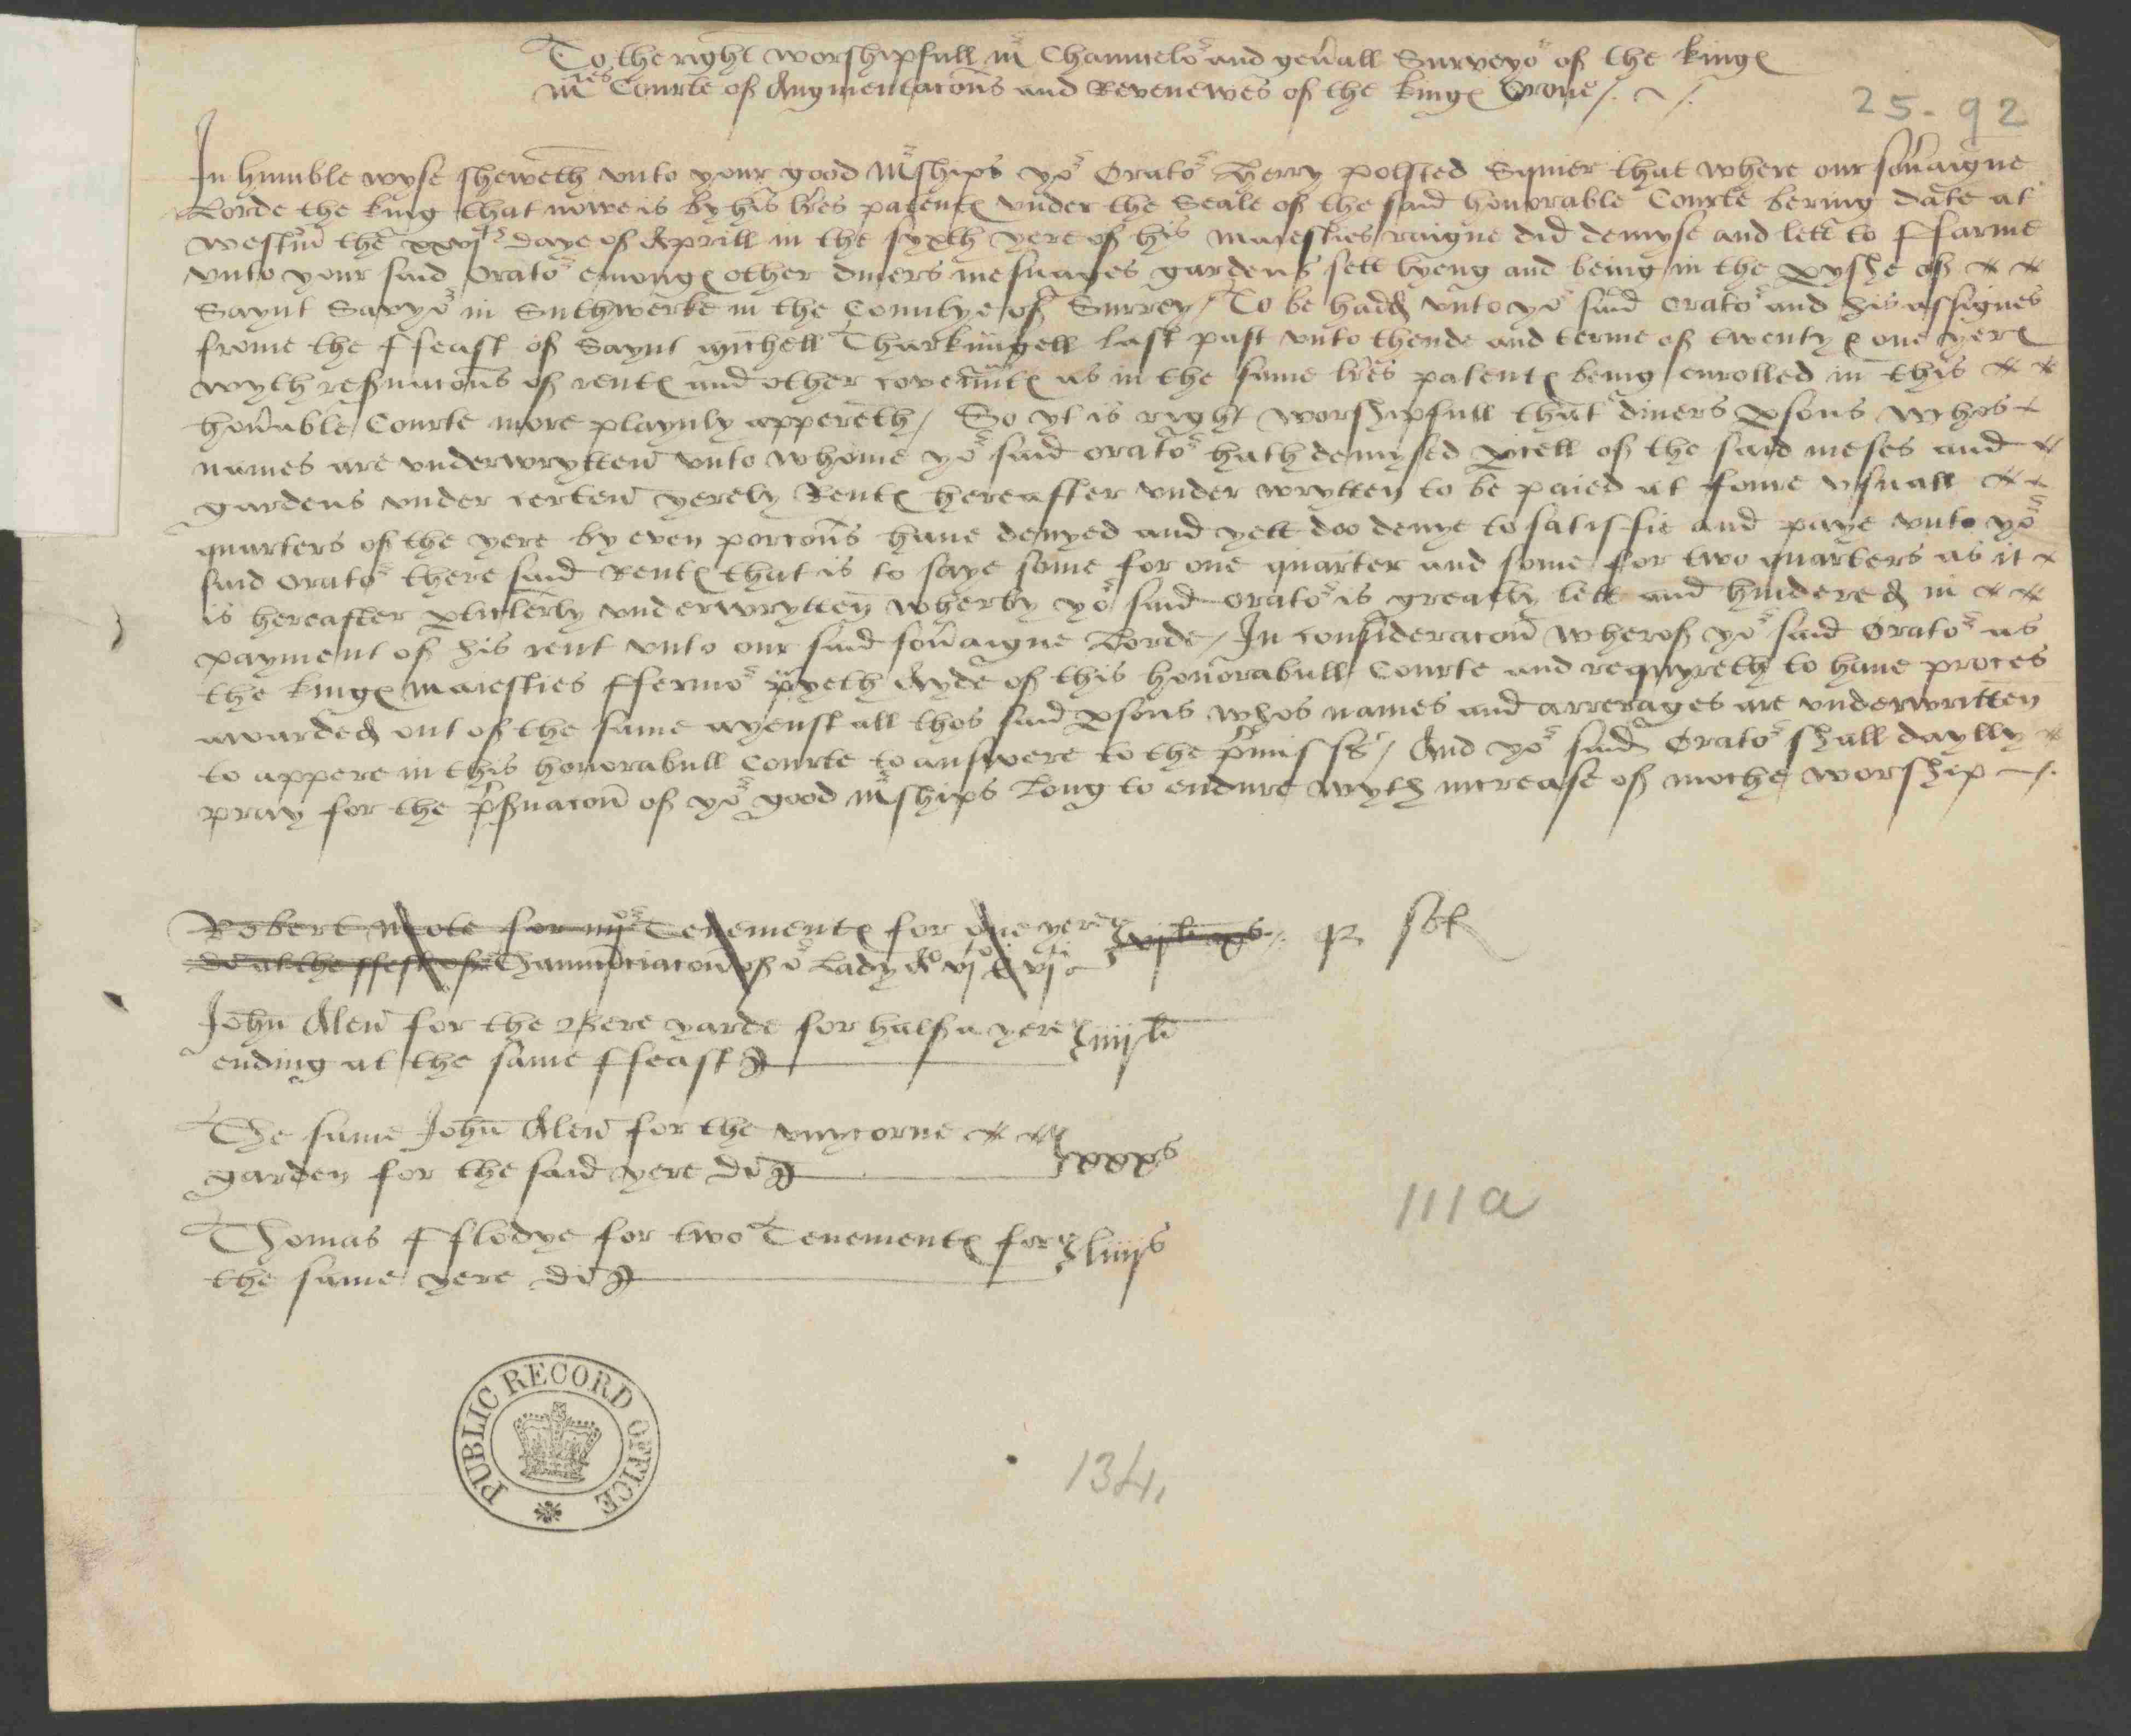 To the right worshipfull mr Chauncelor and gen'all Surveyor of the kinges
maties Courte of Augmentac'ons and Revenewes of the kinges Crone
25-92
In humble wyse sheweth vnto your good Mrships yor Orator Henry polsted that where our sou'aigne
Lorde the king that nowe is by his l'res patentes vnder the Seale of the said honorable Courte bering date at
westm' the daye of Aprill in the syxth yere of his maiesties raigne did demyse and lett to fferme
vnto your said Orator emonges other diuers mesuages gardens sett lyeng and being in the p'yshe of
Saynt Savyor in Suthwerke in the Countye of Surrey / To be hadd vnto yor said orator and his assignes
frome the ffeast of Saynt mychell Tharkungell last past vnto thende and terme of twenty & one yeres
wyth resruac'ons of rentes and other covenntes as in the same l'res patentes being enrolled in this
hon'able Courte more playnly appereth / So yt is right worshipfull that diuers p'sons whos
names are vnderwrytten vnto whome yor said orator hath demysed p'cell of the said meses and
gardens vnder certen yerely Rentes hereafter vnder wrytten to be paied at foure vsuall
quarters of the yere by even porc'ons haue denyed and yett doo denye to satisfie and paye vnto yor
said orator there said Rentes that is to saye some for one quarter and some for two quarters as it
is hereafter p'ticlerly vnderwrytten wherby yor said orator is greatly lett and hindered in
payment of his rent vnto our said sou'aigne Lorde / In consideracon wherof yor said Orator as
the kinges maiesties ffermor p'yeth Ayde of this honorabull Courte and reqwyreth to haue proces
awarded out of the same ayenst all thos said p'sons whos names and arrerages are vnderwritten
to appere in this honorabull Courte to answere to the p'misses / And yor said Orator shall daylly
pray for the p's'uacon of yor good Mrships Long to endure wyth increase of moche worship
Robert Mote for iiijor Tenementes for one yere
di at the ffest of Thannunciacon of or Lady Ao vjto E vjti
John Alen for the Bere yarde for half a yere iiij li
ending at the same ffeast
The same John Alen for the vnycorne
garden for the said yere di xxx s
Thomas fflodye for two Tenementes for liiij s
the same yere di
111a
134
PUBLIC RECORD OFFICE